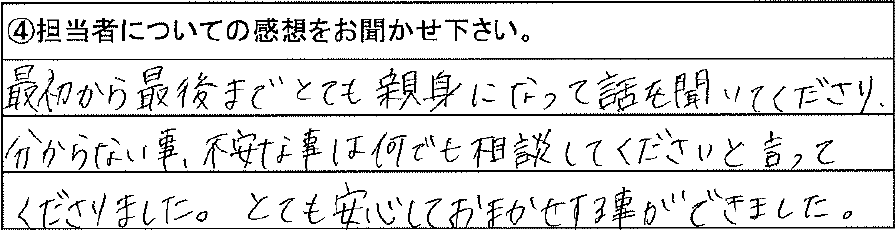 ④担当者についての感想をお聞かせ下さい。
最初から最後までとても親身になって話を聞いてくださり、
分からない事、不安な事は何でも相談してくださいと言って
くださりました。とても安心しておまかせする事ができました。